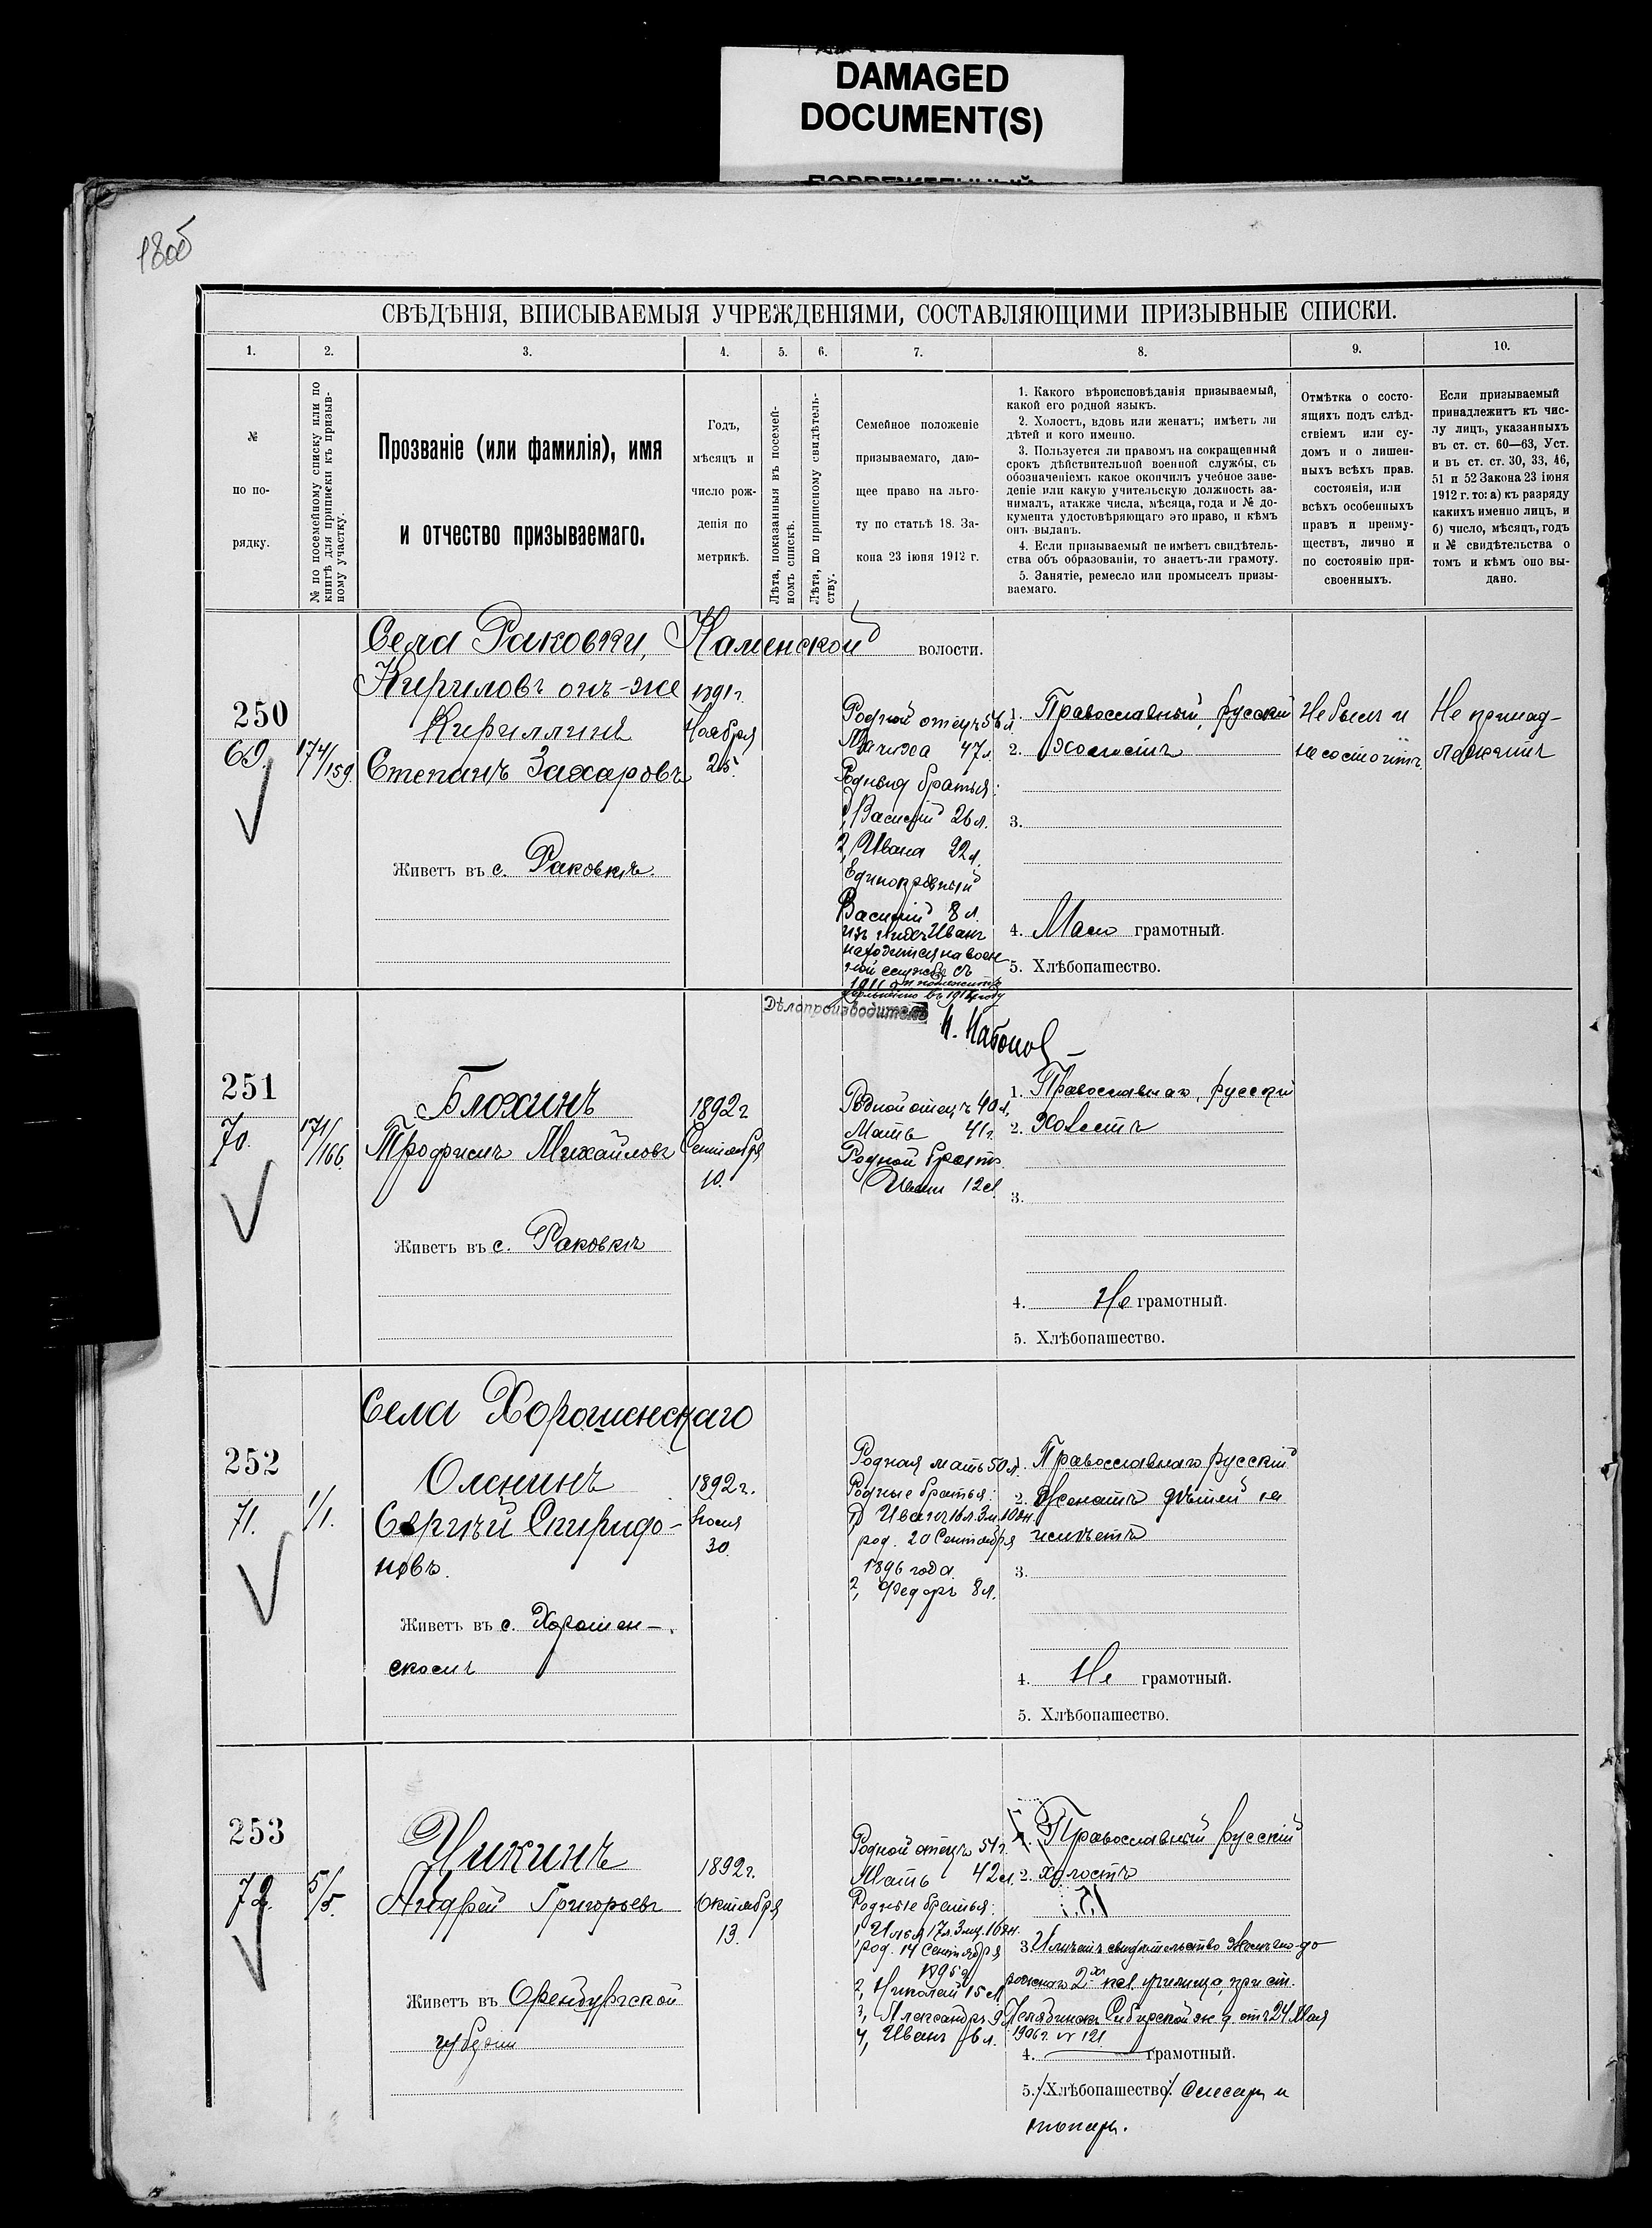 DAMAGED
DOCUMENT(S)
18об
СВѢДѢНІЯ, ВПИСЫВАЕМЫЯ УЧРЕЖДЕНІЯМИ, СОСТАВЛЯЮЩИМИ ПРИЗЫВНЫЕ СПИСКИ.
1. 2. 3. 4. 5. 6. 7. 8. 9. 10.
№
по по-
рядку.
№ по посемейному списку или по
книгѣ для приписки къ призыв-
ному участку.
Прозваніе (или фамилія), имя
и отчество призываемаго.
Годъ,
мѣсяцъ и
число рож-
денія по
метрикѣ.
Лѣта, показанныя въ посемей-
номъ спискѣ.
Лѣта, по приписному свидѣтель-
ству.
Семейное положеніе
призываемаго, даю-
щее право на льго-
ту по статьѣ 18. За-
кона 23 іюня 1912 г.
1. Какого вѣроисповѣданія призываемый,
какой его родной языкъ.
2. Холостъ, вдовъ или женатъ; имѣетъ ли
дѣтей и кого именно.
3. Пользуется ли правомъ на сокращенный
срокъ дѣйствительной военной службы, съ
обозначеніемъ какое окончилъ учебное заве-
деніе или какую учительскую должность за-
нималъ, а также числа, мѣсяца, года и № до-
кумента удостовѣряющаго это право, и кѣмъ
онъ выданъ.
4. Если призываемый не имѣетъ свидѣтель-
ства объ образованіи, то знаетъ-ли грамоту.
5. Занятіе, ремесло или промыселъ призы-
ваемаго.
Отмѣтка о состо-
ящихъ подъ слѣд-
ствіемъ или су-
домъ и о лишен-
ныхъ всѣхъ прав.
состоянія, или
всѣхъ особенныхъ
правъ и преиму-
ществъ, лично и
по состоянію при-
своенныхъ.
Если призываемый
принадлежитъ къ чис-
лу лицъ, указанныхъ
въ ст. ст. 60—63, Уст.
и въ ст. ст. 30, 33, 46,
51 и 52 Закона 23 іюня
1912 г. то: а) къ разряду
какихъ именно лицъ, и
б) число, мѣсяцъ, годъ
и № свидѣтельства о
томъ и кѣмъ оно вы-
дано.
Села Раковки, Каменской волости.
250
69.
174/159.
Кириловъ онъ-же
Кириллинъ
Степанъ Захаровъ
Живетъ въ с. Раковкѣ.
1891 г.
Ноября
25.
Родной отецъ 56 л.
Мачиха 47 л.
Родныя братья:
1, Василій 26 л.
2, Ивана 22 л.
Единокровный
Василій 8 л.
изъ нихъ Иванъ
находится на воен
ной службѣ съ
1911
въ 1914 году
1. Православный, русскій
2. Холостъ
3.
4. Мало грамотный.
5. Хлѣбопашество.
Не былъ и
не состоитъ
Не принад-
лежитъ
Дѣлопроизводитель
251
70.
171/166.
Блохинъ
Трофимъ Михайловъ
Живетъ въ с. Раковкѣ
1892 г
Сентября
10.
Родной отецъ 40 л,
Мать 41 г.
Родной братъ
Иванъ 12 л
1. Православнаго, русскій
2. Холостъ
3.
4. Не грамотный.
5. Хлѣбопашество.
Села Хорошенскаго
252
71.
1/1.
Оленинъ
Сергѣй Спиридо-
новъ.
Живетъ въ с. Хорошен-
скомъ
1892 г.
Іюля
30.
Родная мать 50 л.
Родные братья:
1, Иванъ 16 л. 3 м. 10 дн.
род. 20 Сентября
1896 года.
2, Федоръ 8 л.
1. Православнаго русскій
2. Женатъ дѣтей не
имѣетъ
3.
4. Не грамотный.
5. Хлѣбопашество.
253
72.
5/5.
Чикинъ
Андрей Григорьевъ
Живетъ въ Оренбургской
губерніи
1892 г.
Октября
13.
Родной отецъ 51 г.
Мать 42 л.
Родные братья:
1, Илья 17 л. 3 мц. 16 дн.
род. 14 Сентября
1895 г
2, Николай 15 л
3, Александръ 9 л
4, Иванъ 6 л.
1. Православный русскій
2. холостъ
3. Имѣетъ свидѣтельство Желѣзно-до
рожнаго 2хъ кл. училища, при ст.
Челябинскъ Сибирской ж. д. отъ 24 Мая
1906 г. № 121
4. грамотный.
5. Хлѣбопашество. Слесарь и
токарь.